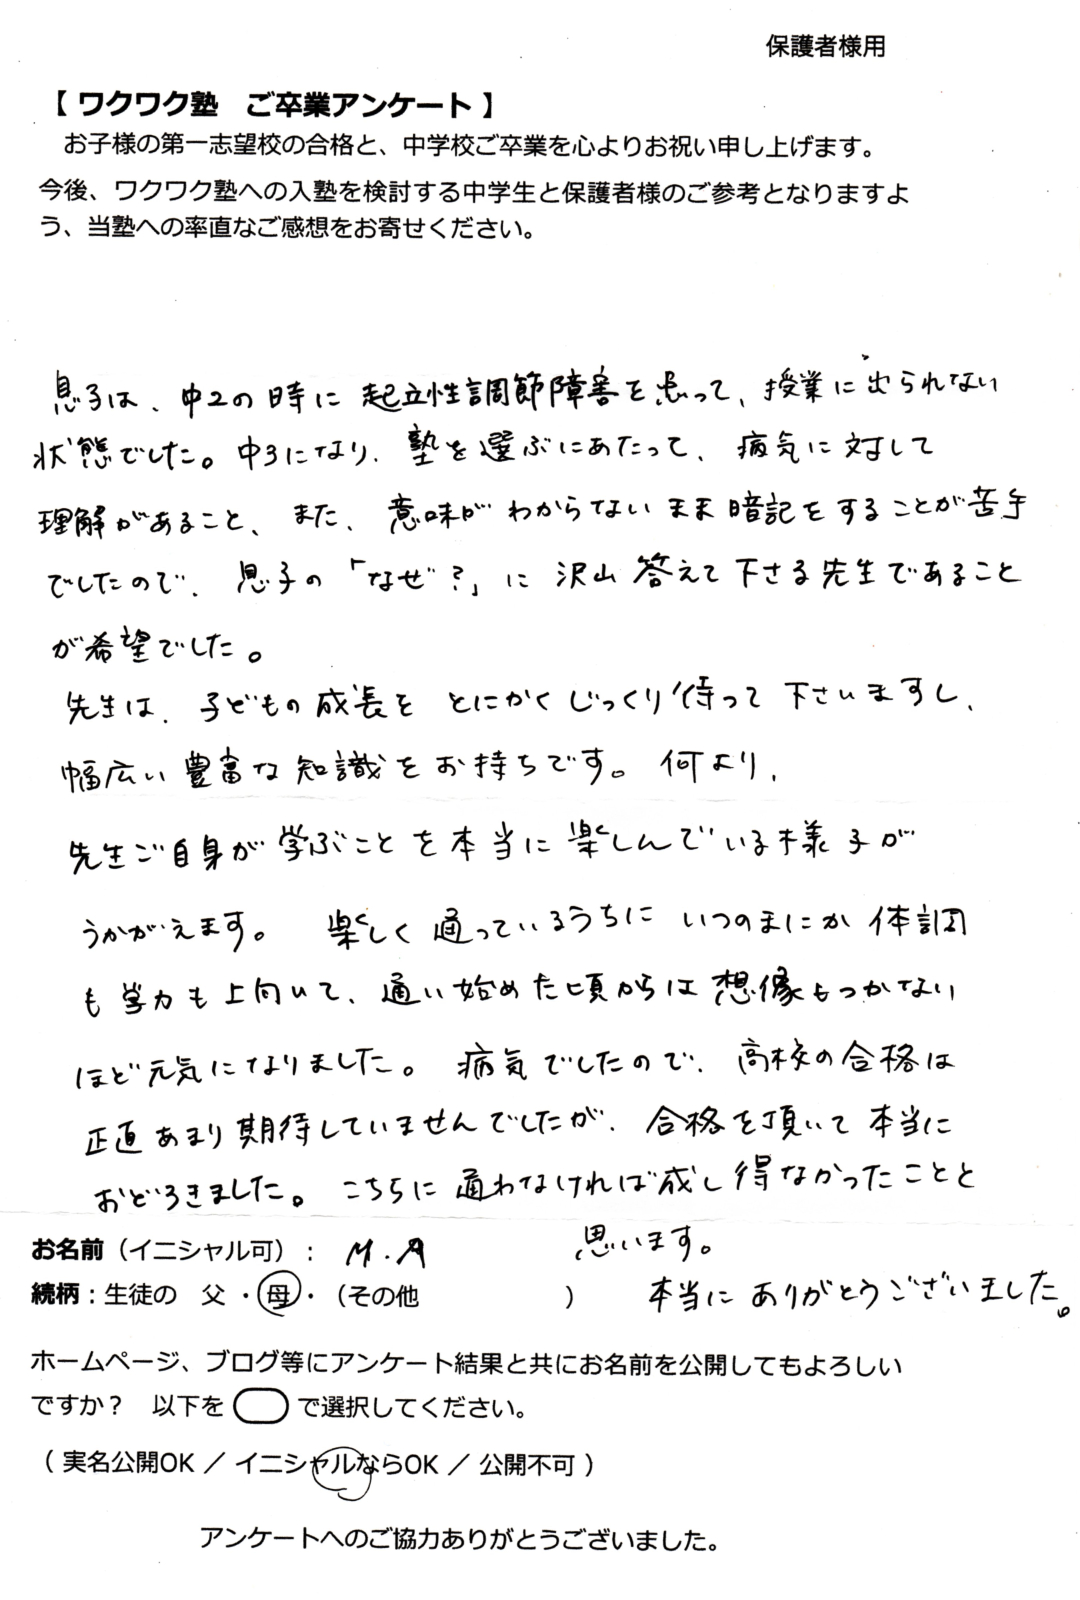 保護者様用
【 ワクワク塾　ご卒業アンケート 】
お子様の第一志望校の合格と、中学校ご卒業を心よりお祝い申し上げます。
今後、ワクワク塾への入塾を検討する中学生と保護者様のご参考となりますよ
う、当塾への率直なご感想をお寄せください。
息子は、中2の時に起立性調節障害を患って、授業に出られない
状態でした。中3になり、塾を選ぶにあたって、病気に対して
理解があること、また、意味がわからないまま暗記をすることが苦手
でしたので、息子の「なぜ？」に沢山答えて下さる先生であること
が希望でした。
先生は、子どもの成長をとにかくじっくり待って下さいますし、
幅広い豊富な知識をお持ちです。何より、
先生ご自身が学ぶことを本当に楽しんでいる様子が
うかがえます。楽しく通っているうちにいつのまにか体調
も学力も上向いて、通い始めた頃からは想像もつかない
ほど元気になりました。病気でしたので、高校の合格は
正直あまり期待していませんでしたが、合格を頂いて本当に
おどろきました。こちらに通わなければ成し得なかったことと
思います。
本当にありがとうございました。
お名前（イニシャル可）： M.A
続柄：生徒の　父・母・（その他　　　　　　）
ホームページ、ブログ等にアンケート結果と共にお名前を公開してもよろしい
ですか？　以下を　　で選択してください。
（ 実名公開OK ／ イニシャルならOK ／ 公開不可 ）
アンケートへのご協力ありがとうございました。